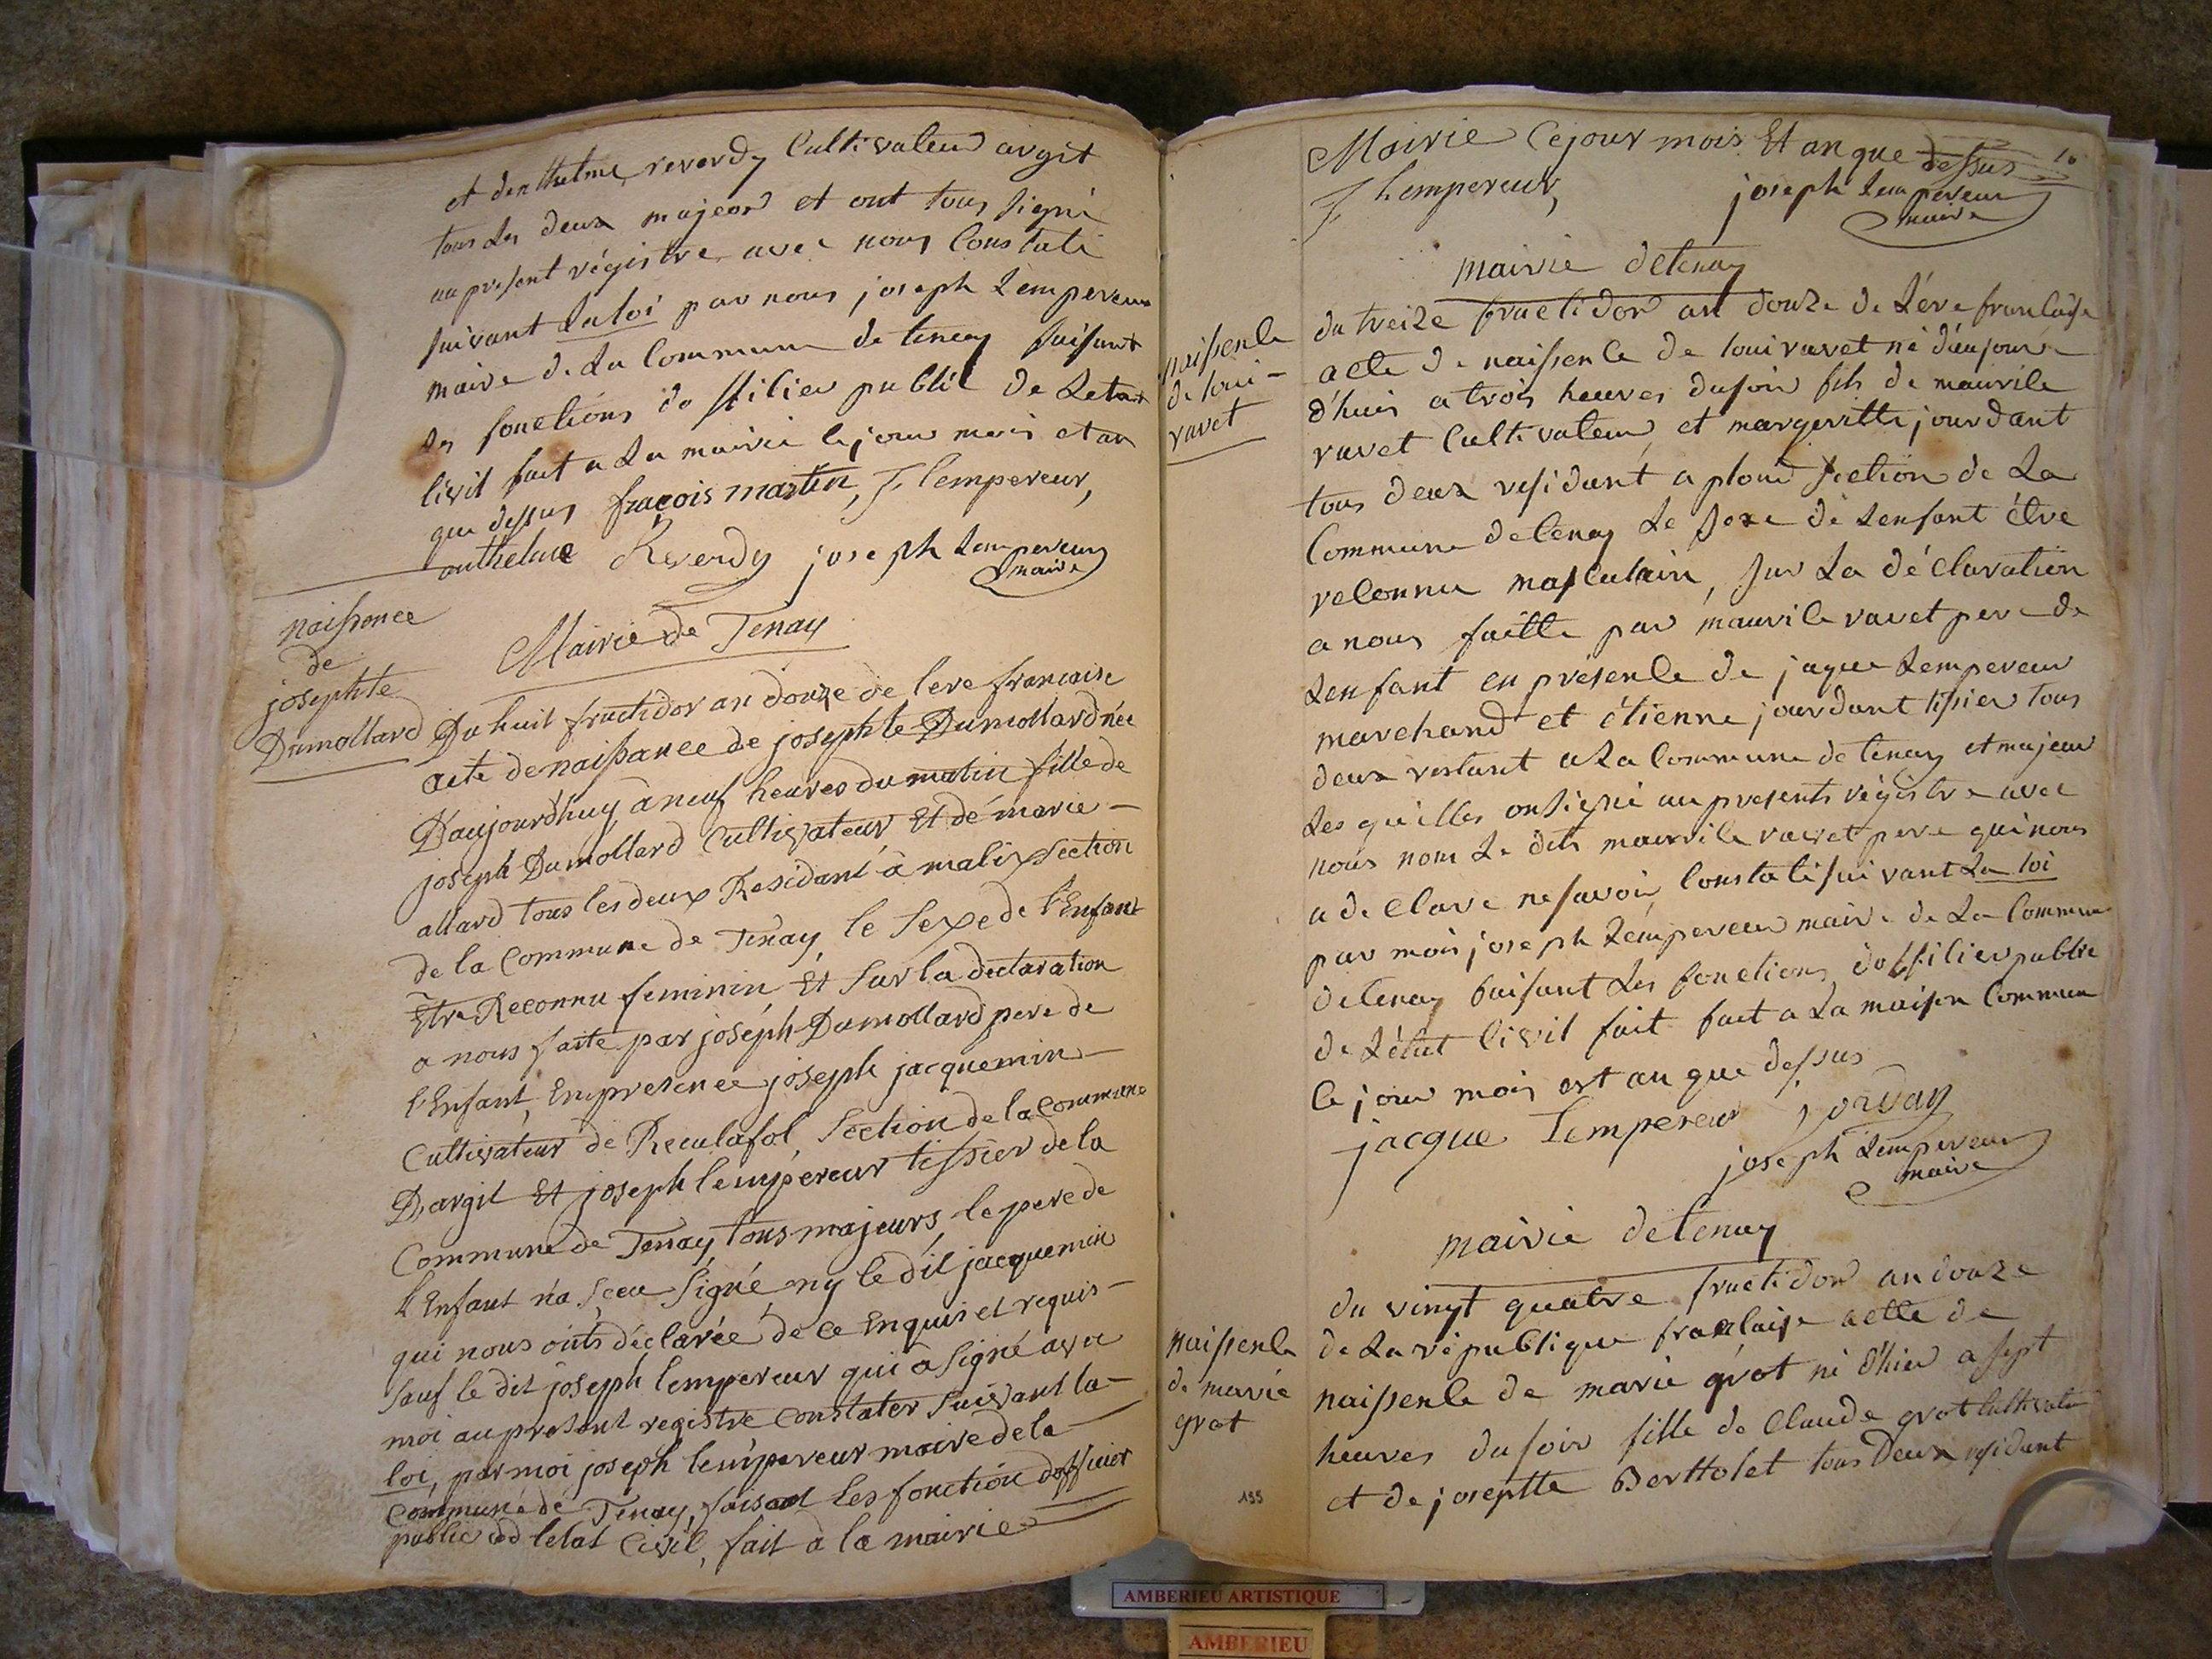 et danthelme reverdy Cultivateur argit
tous les deux majeor et ont tous signé
au present régistre avec nous Constaté
suivant La loi par nous joseph Lempereur
maire de La Commune de tenay faisant
Les fonctions dofficier public de Letat
Civil fait a La mairie le jour mois et an
que dessus fraçois martin, J lempereur,
anthelme Reverdy joseph Lempereur
maire
naissance
de
josephte
Dumollard
Mairie de Tenay
Du huit fructidor an douze de lere francaise
acte de naissance de josephte Dumollard née
D'aujourd'huy à neuf heures du matin fille de
joseph Dumollard Cultivateur Et de marie -
allard tous les deux Residant à malix section
de la Commune de Tenay, le Sexe de l'Enfant
Etre Reconnu feminin Et Sur la declaration
a nous faite par joséph Dumollard pere de
l'Enfant, En presence joseph jacquemin -
Cultivateur de Reculafol Section de la Commune
D'argit Et joseph lempéreur tissier de la
Commune de Tenay, tous majeurs, le pere de
L'Enfant n'a sceu Signé ny lé dit jacquemin
qui nous onts déclarée de ce Enquis et requis -
Sauf le dit joseph lempereur qui a Signé avec
moi au present registre Constater Suivant la -
loi, par moi joseph lempereur maire de la
Commune de Tenay, faisant les fonction d'officier
public de letat Civil, fait à la mairie
Mairie Ce jour mois Et an que dessus
10
J lempereur,
joseph Lempereur
maire
mairie de tenay
naissence
de loui -
ravet
du treize fructidor an douze de Lére francaise
acte de naissence de loui ravet né d'aujour
d'huis a trois heures du soir fils de maurile
ravet Cultivateur et margeritte jourdant
tous deux residant a plomd section de La
Commune de tenay Le sexe de Lenfant étre
reconnu masculain, sur La déclaration
a nous faitte par maurile ravet pere de
Lenfant en présence de jaque Lempereur
marchand et étienne jourdant tisier tous
deux restant a La Commune de tenay et majeur
Les quelles on signé au presents régistre avec
nous nom Le dits maurile ravet pere qui nous
a declare ne savoir Constaté suivant La loi
par mois joseph Lempereur maire de La Commune
de tenay faisant Les fonctions dofficier public
de Létat Civil fait fact a La maison Commun
le jour mois est an que dessus
jacque Lempereur jordan
joseph Lempereur
maire
mairie de tenay
naissence
de marie
grot
du vingt quatre fructidor an douze
de La républi que francaise acte de
naissence de marie grot né d'hier a sept
heures du soir fille de Claude grot Cultivateur
et de joseptte Berttolet tous Deux residant
199
AMBERIEU ARTISTIQUE
AMBERIEU